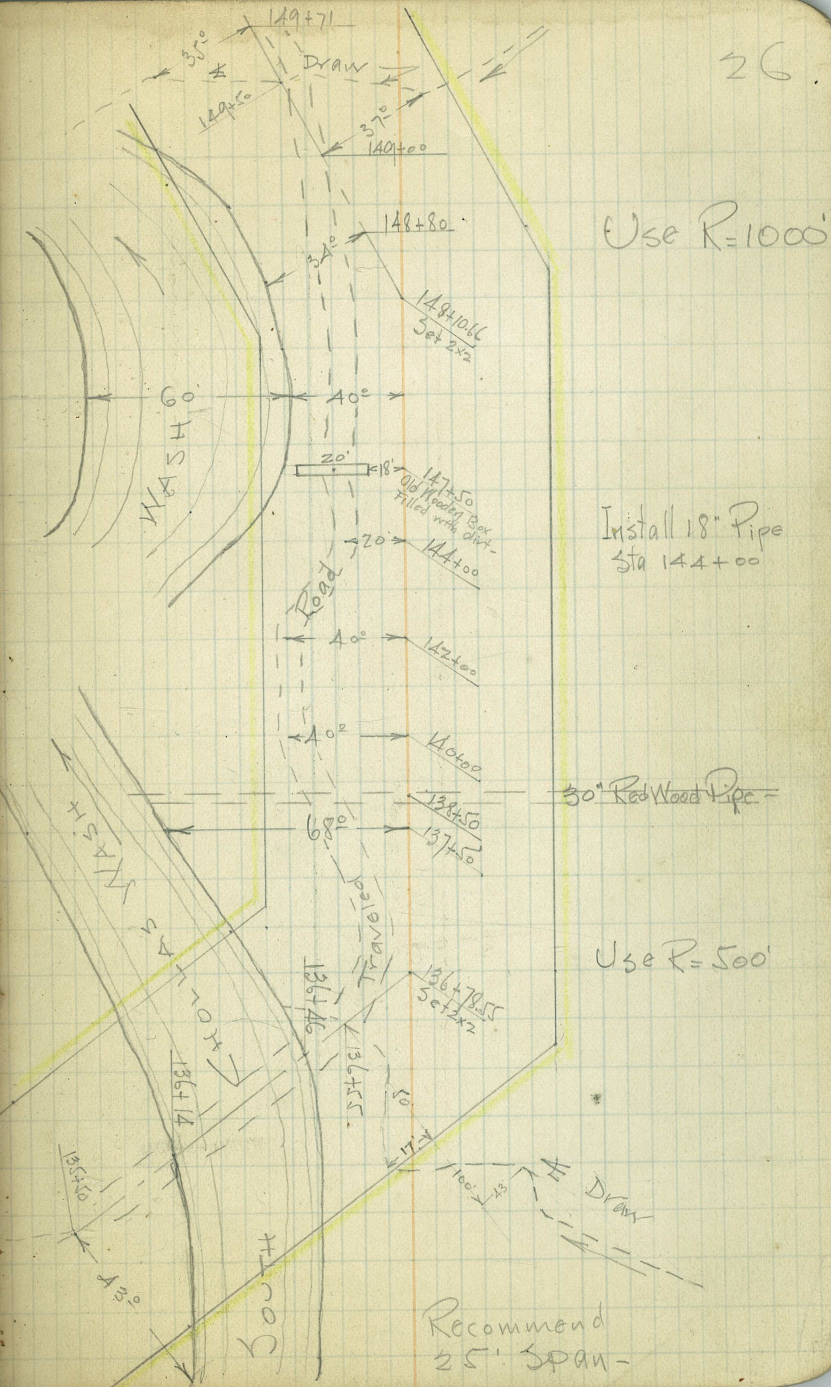 26
149+71
35.0
Draw
149+50
37.0
149+00
148+80
Use R=1000'
34.0
148+10.66
Set 2x2
60
40.0
WASH
20'
18'
147+50
Old Wooden Box
Filled with dirt-
Install 18" Pipe
Sta 144+00
20'
144+00
Road
40.0
142+00
40.0
140+00
30" Red Wood Pipe -
138+50
68.0
137+50
WASH
Traveled
Use R=500'
136+78.55
Set 2x2
136+46
136+55
136+14
17'
135+50
100'
43
Draw
43.0
SOUTH
Recommend
25' Span-